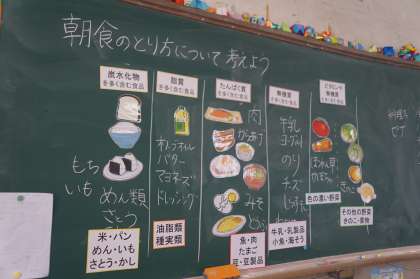 朝食のとり方について考えよう
炭水化物
を多く含む食品
もち
いも
めん類
さとう
米・パン
めん・いも
さとう・かし
脂質
を多く含む食品
オリーブオイル
バター
マヨネーズ
ドレッシング
油脂類
種実類
たんぱく質
を多く含む食品
肉
からあげ
みそ
魚・肉
たまご
豆・豆製品
無機質
を多く含む食品
牛乳
ヨーグルト
のり
チーズ
牛乳・乳製品
小魚・海そう
ビタミンや
無機質
を多く含む食品
色の濃い野菜
きのこ
その他の野菜
きのこ・果物